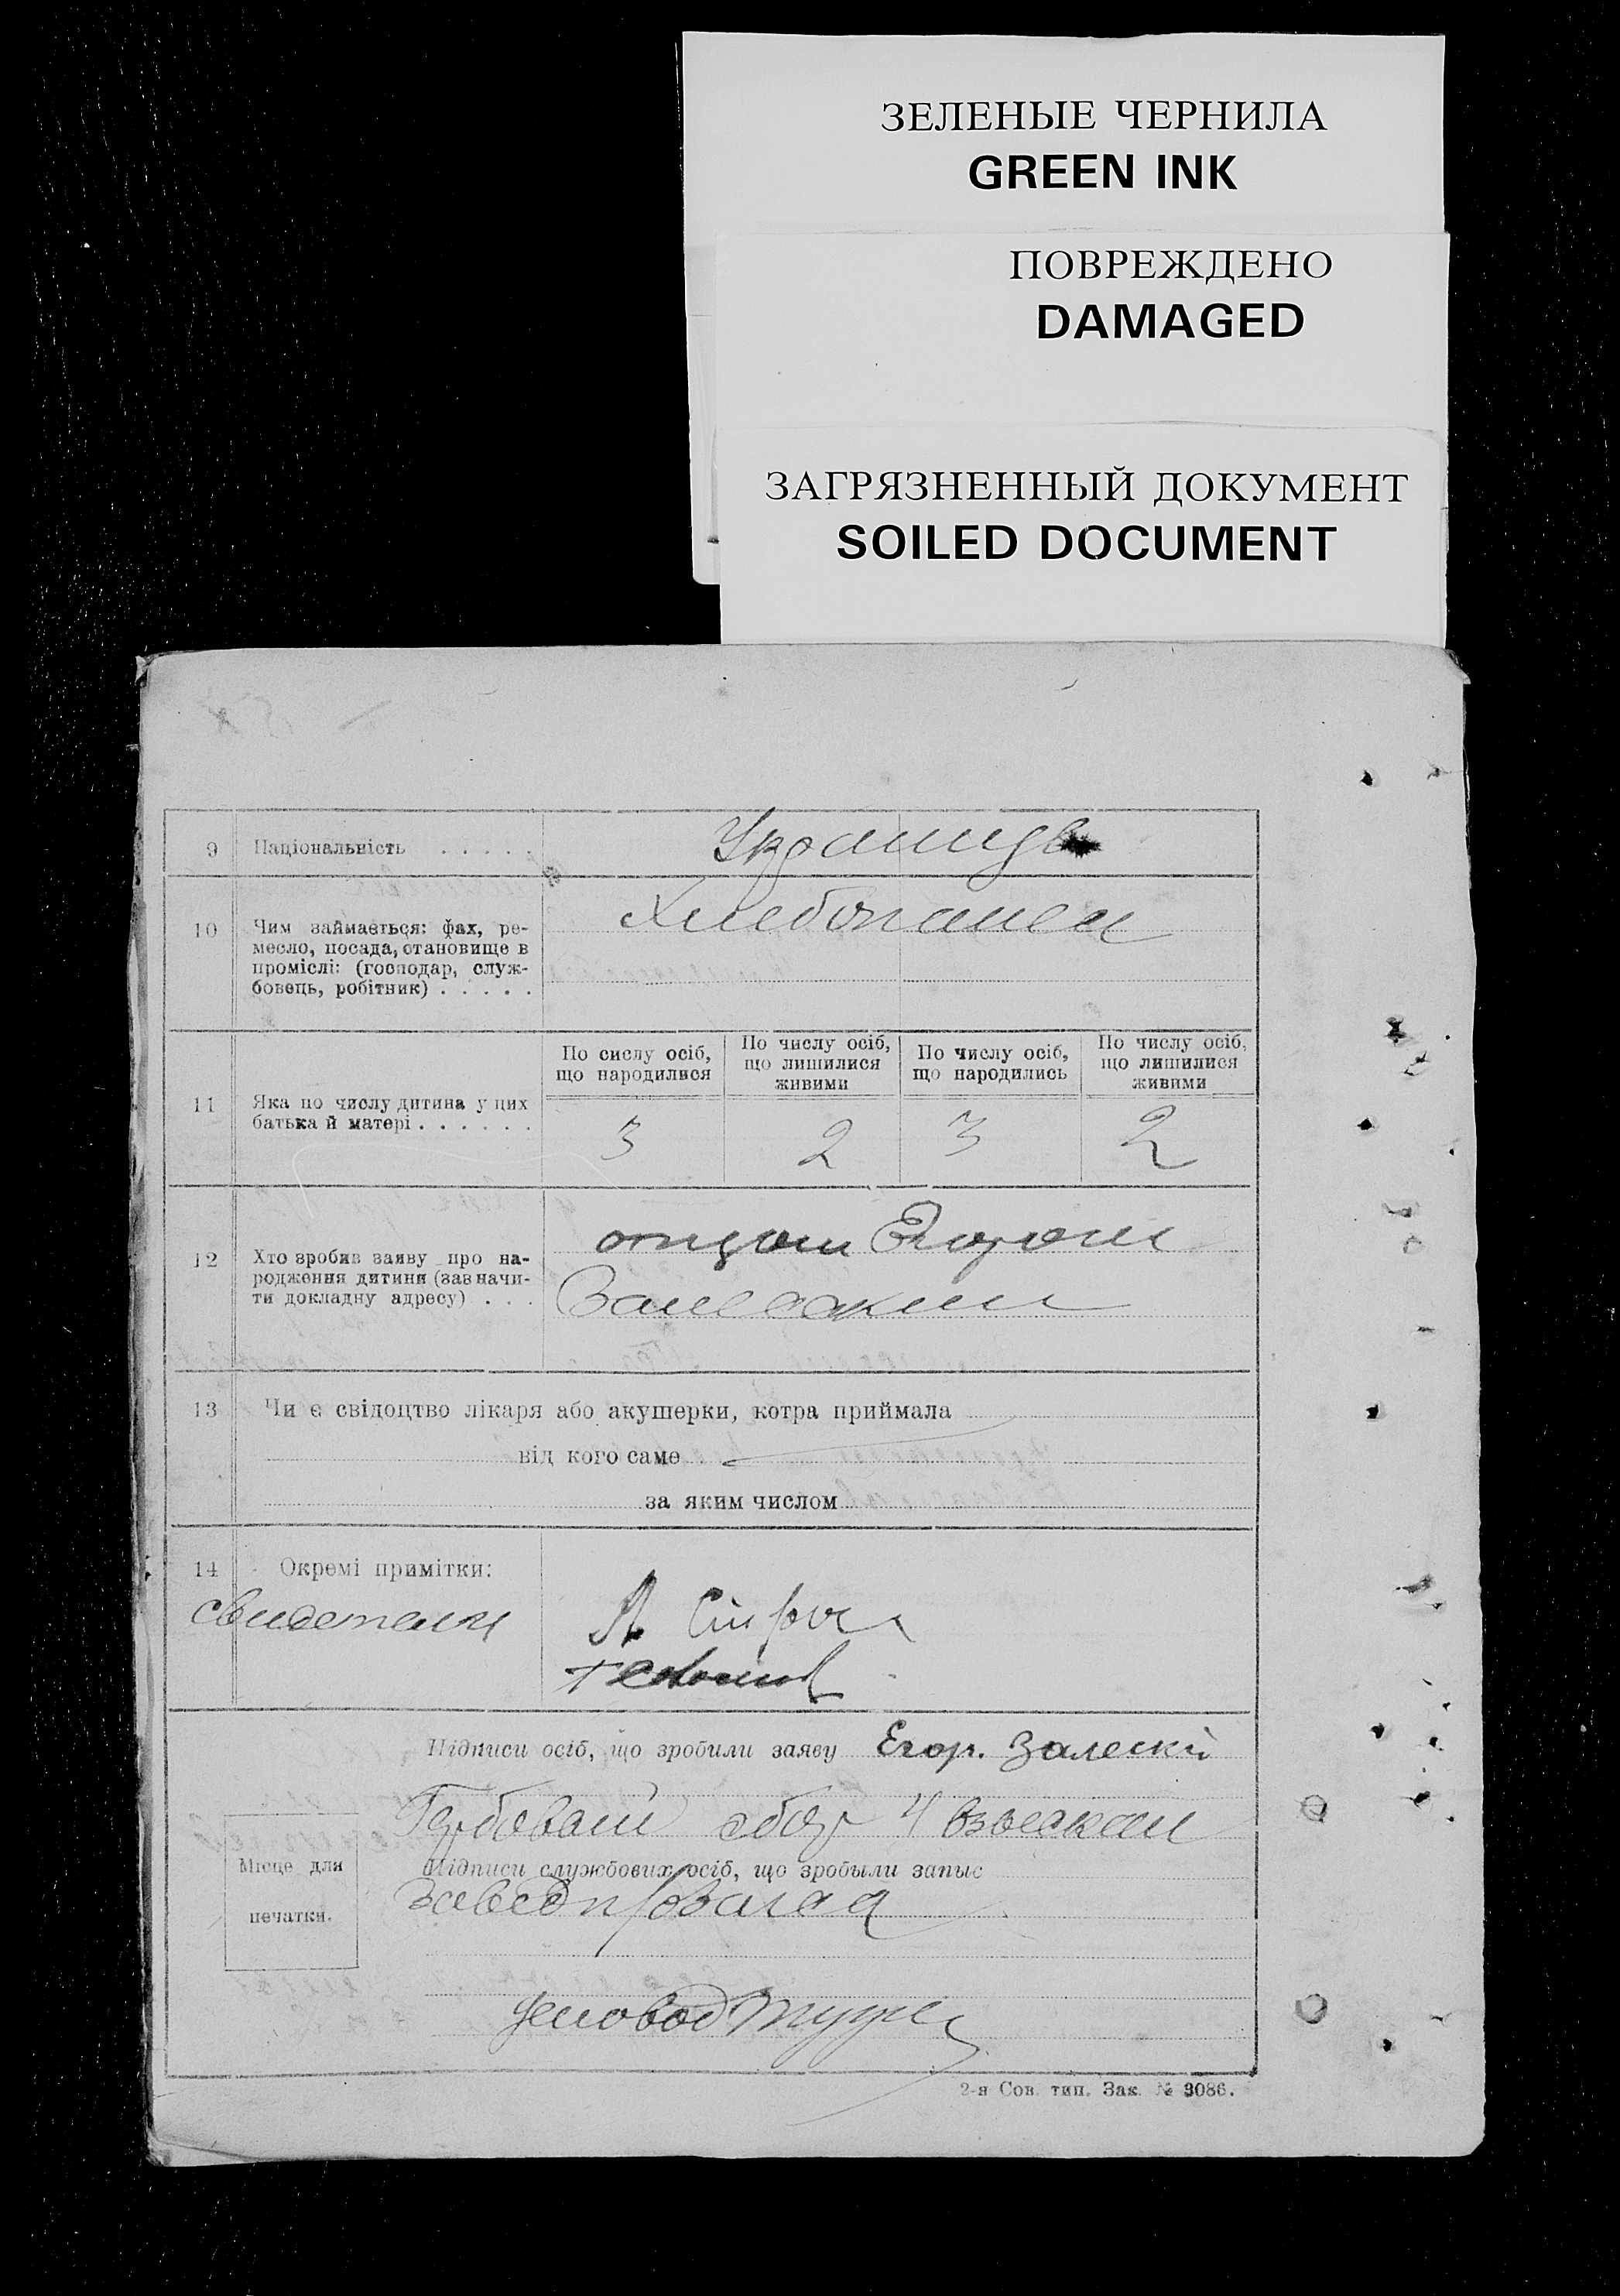 ЗЕЛЕНЫЕ ЧЕРНИЛА
GREEN INK
ПОВРЕЖДЕНО
DAMAGED
ЗАГРЯЗНЕННЫЙ ДОКУМЕНТ
SOILED DOCUMENT
9 Національність . . . . .
10 Чим займається: фах, ре-
месло, посада, становище в
проміслі: (господар, служ-
бовець, робітник) . . . . .
Хлебопашец
По сислу осіб,
що народилися
По числу осіб,
що лишилися
живими
По числу осіб,
що народились
По числу осіб,
що лишилися
живими
11 Яка по числу дитина у цих
батька й матері . . . . . .
3 2 3 2
12 Хто зробив заяву про на-
родження дитини (зазначи-
ти докладну адресу) . . .
отцом Егором
Залеским
13 Чи є свідоцтво лікаря або акушерки, котра приймала
від кого саме
за яким числом
14 Окремі примітки:
свидетели
Підписи осіб, що зробили заяву Егор. Залескій
Гербовый сбор взыскан
Місце для
печатки.
Підписи службових осіб, що зробыли запыс
Деловод
2-я Сов. тип. Зак. № 3086.